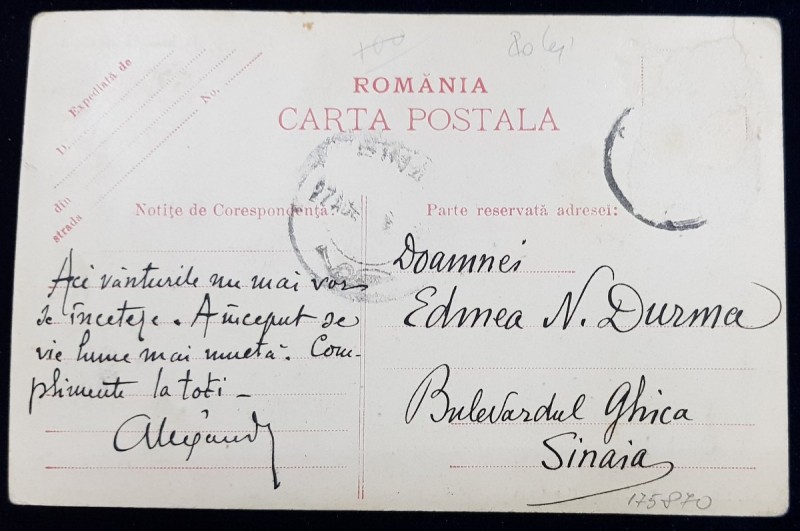 80 lei
Expediată de
D.
No.
din
strada
ROMÂNIA
CARTA POSTALA
Notițe de Corespondență:
Parte reservată adresei:
Aci vânturile nu mai vor
se înceteze. A început se
vie lume mai multă. Com-
plimente la toți –
Doamnei
Edmea N. Durma
Bulevardul Ghica
Sinaia
175870